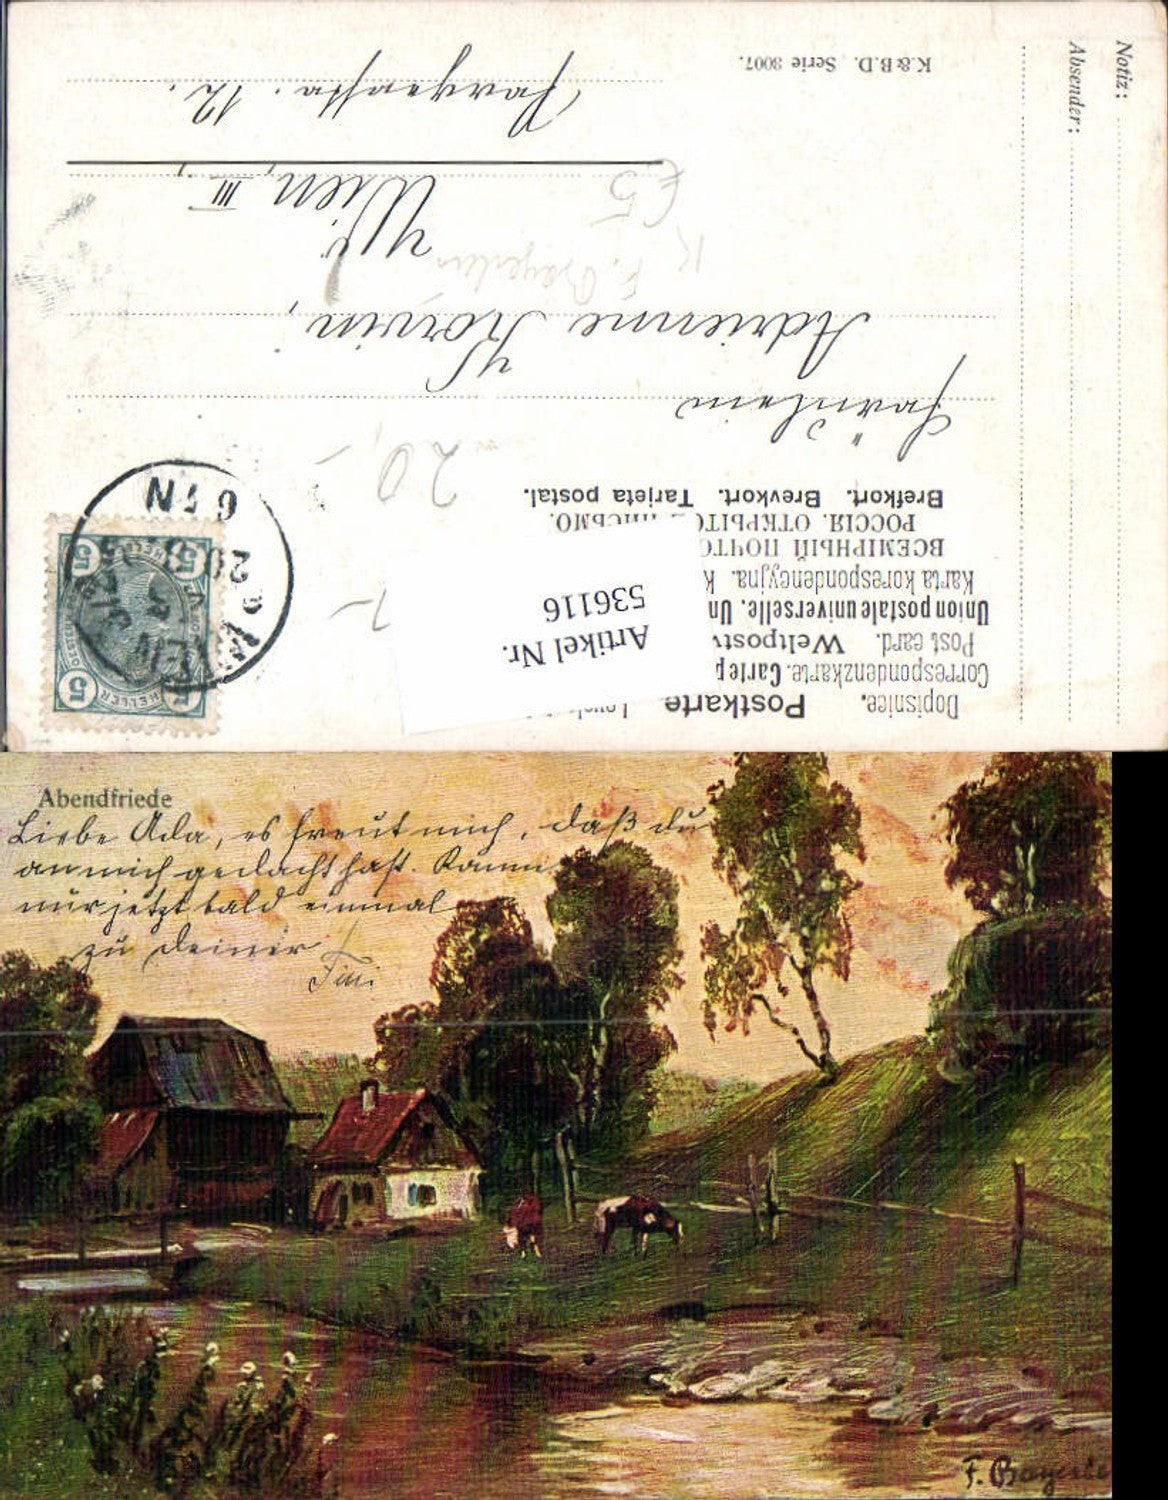 Notiz:
Absender:
Dopisnice. Postkarte
Correspondenzkarte.
Post card.
Union postale universelle.
Karta korespondencyjna.
ВСЕМІРНЫЙ
РОССІЯ.
Brefkort. Brevkort. Tarjeta postal.
Artikel Nr.
536116
20,-
Fräulein
Adrienne Korvin,
F. Bayerlein
Wien, III.,
£5
12.
K.&B.D., Serie 3007.
5 5
HELLER
5 5
WIEN
6 N
Abendfriede
Liebe Ada, es freut mich, daß du
an mich gedacht hast. Komm
nur jetzt bald einmal
zu deiner
Tini